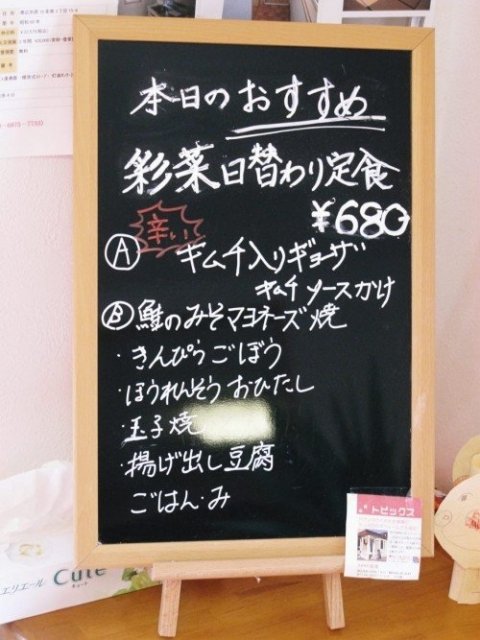 本日のおすすめ
彩菜日替わり定食
¥680
Ⓐ 辛い キムチ入りギョーザ
キムチソースかけ
Ⓑ 鮭のみそマヨネーズ焼
・きんぴらごぼう
・ほうれんそうおひたし
・玉子焼
・揚げ出し豆腐
ごはん・み
トピックス
エリエール Cute